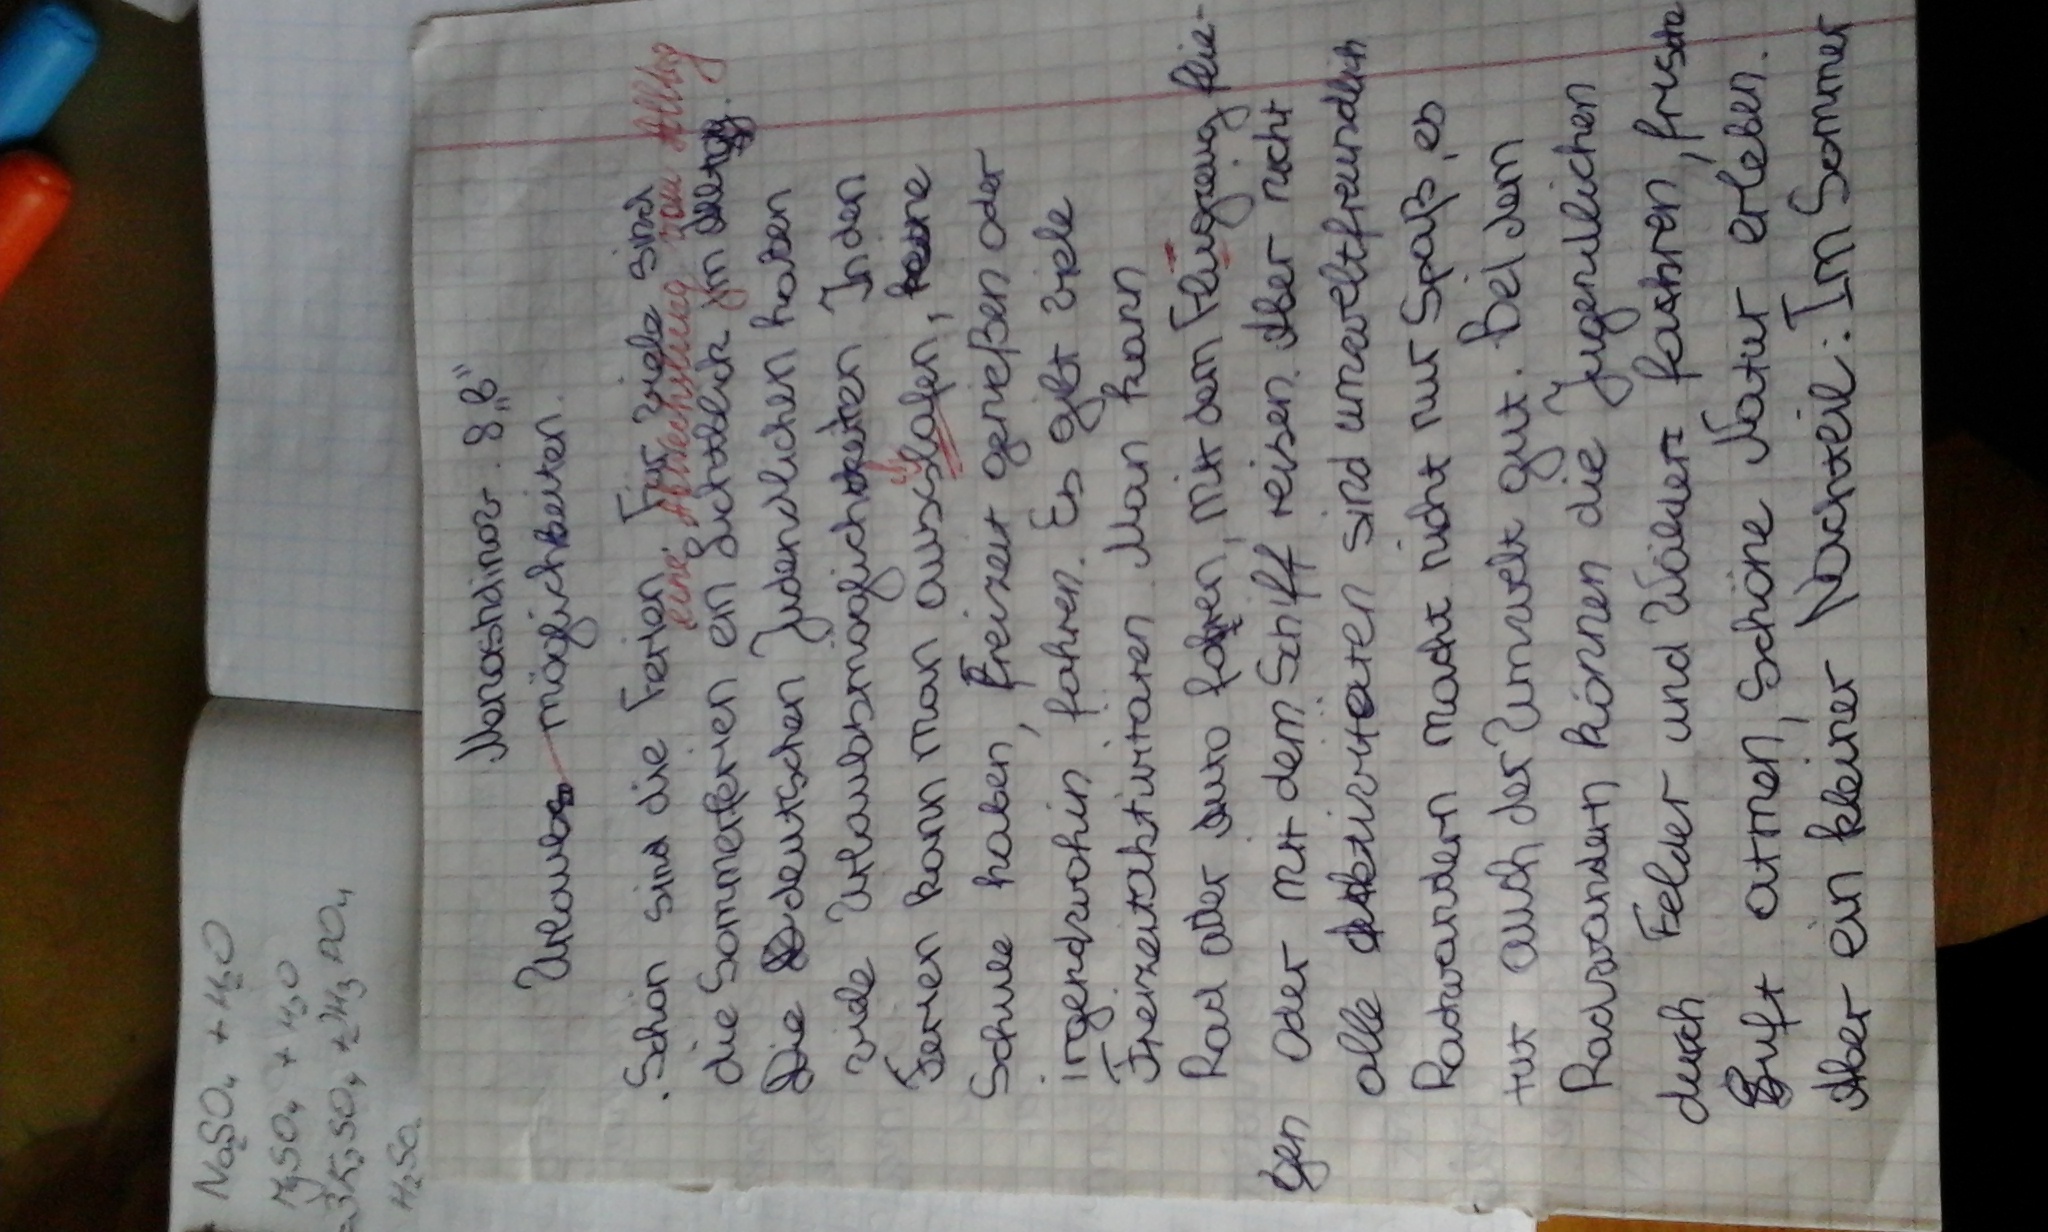 Na₂SO₄ + H₂O
SO₄ + H₂O
SO₄ + 2H₃PO₄
H₂SO₄
8„B"
Urlaubsmöglichkeiten.
Schön sind die Ferien. Für viele sind
eine Abwechslung vom Alltag
die Sommerferien ein Lichtblick im Alltag.
Die deutschen Judendlichen haben
viele Urlaubsmöglichkeiten. In den
Ferien kann man ausschlafen, keine
Schule haben, Freizeit genießen oder
irgendwohin fahren. Es gibt viele
Freizeitaktivitäten. Man kann
Rad oder Auto fahren, mit dem Flugzeug flie-
gen oder mit dem Schiff reisen. Aber nicht
alle Aktivitäten sind umweltfreundlich
Radwandern macht nicht nur Spaß, es
tut auch der Umwelt gut. Bei dem
Radwandern können die Jugendlichen
durch Felder und Wälder fahren, frische
Luft atmen, schöne Natur erleben.
Aber ein kleiner Nachteil: Im Sommer